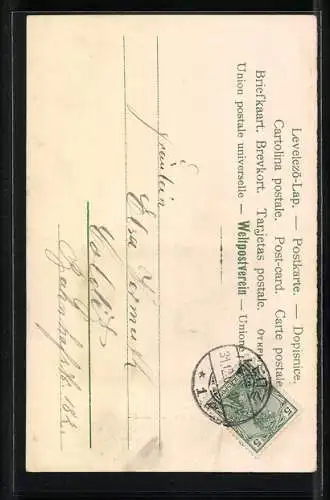 Levelező-Lap. — Postkarte. — Dopisnice.
Cartolina postale. Post-card. Carte postale
Briefkaart. Brevkort. Tarjetas postale. Откр
Union postale universelle — Weltpostverein — Unione
5
5
31.12
* 1
Fräulein
Elsa
Colditz
Bahnhofstr. 182.